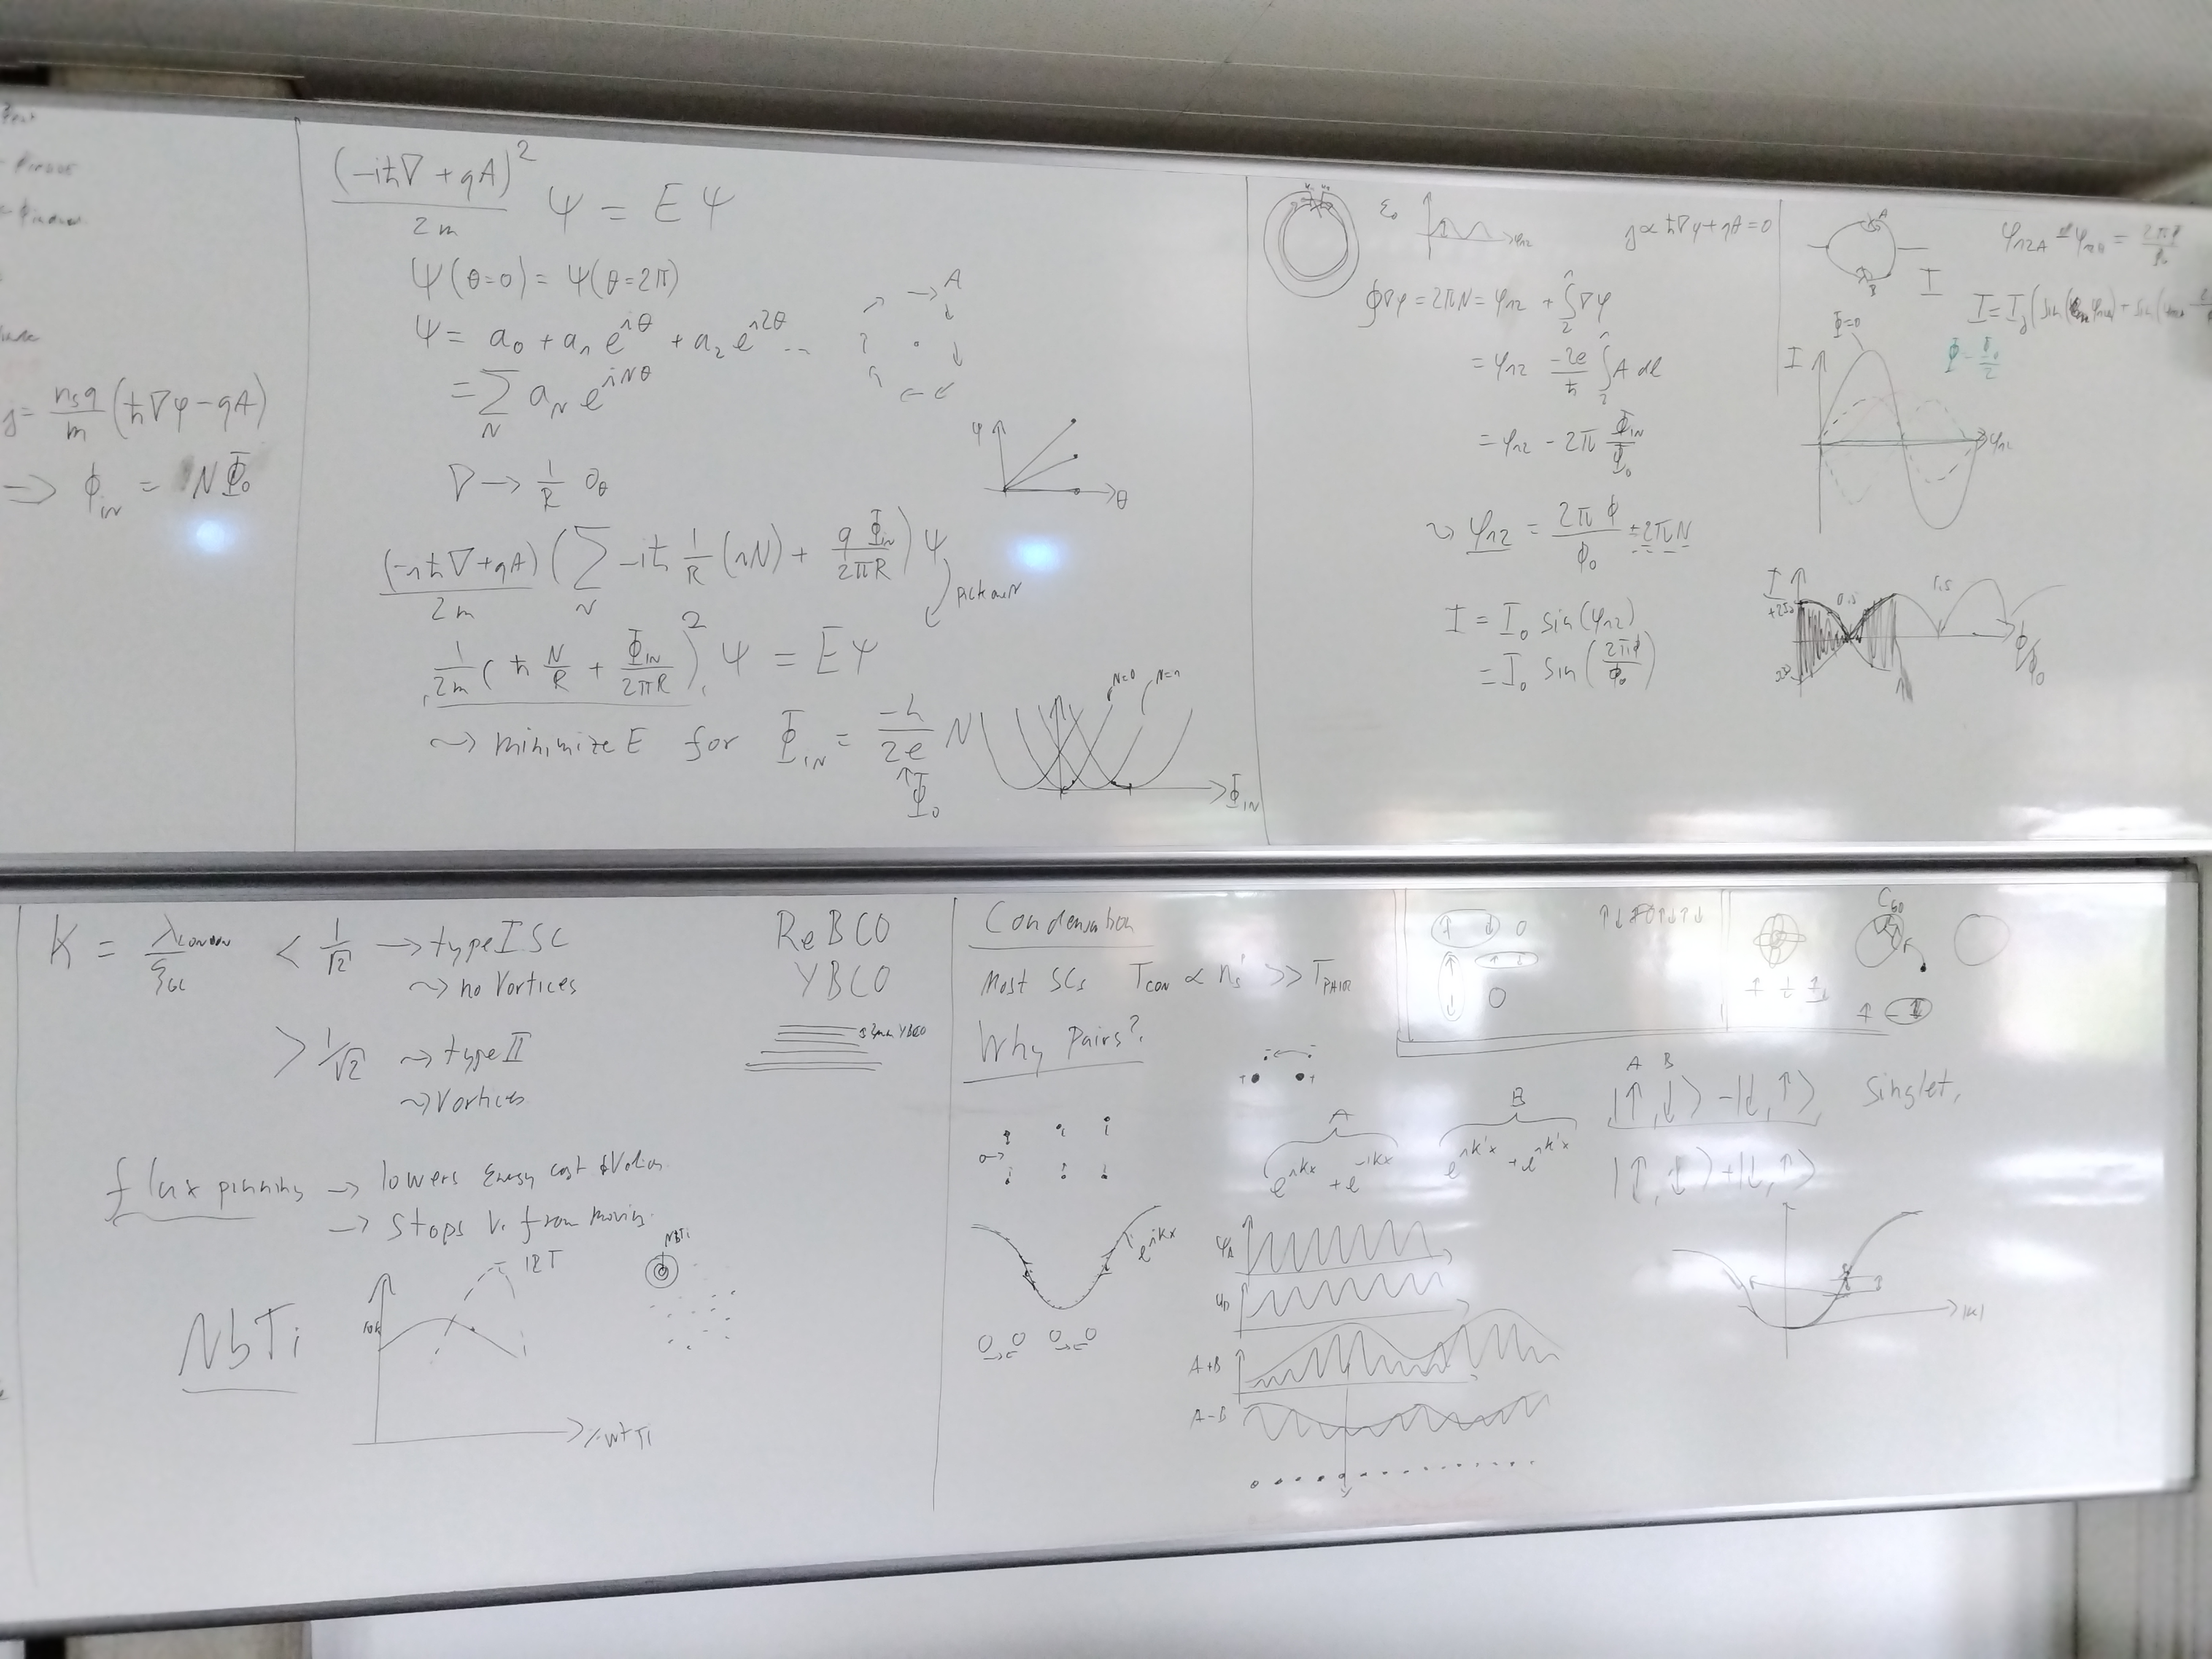 j = n_s q / m (ħ∇φ − qA)
⇒ ϕ_IN = NΦ₀
(−iħ∇ + qA)² / 2m Ψ = EΨ
Ψ(θ=0) = Ψ(θ=2π)
Ψ = a₀ + a₁ e^{iθ} + a₂ e^{i2θ} ...
= Σ_N a_N e^{iNθ}
→ A
∇ → 1/R ∂_θ
φ
θ
(−iħ∇ + qA) / 2m (Σ_N −iħ 1/R (iN) + qΦ_IN / 2πR) Ψ
pick one N
1/2m (ħ N/R + Φ_IN / 2πR)² Ψ = EΨ
N=0 N=1
⇝ minimize E for Φ_IN = −h/2e N
↑Φ₀
Φ_IN
ε₀
φ₁₂
j ∝ ħ∇φ + qA = 0
∮∇φ = 2πN = φ₁₂ + ∫₂¹ ∇φ
= φ₁₂ −2e/ħ ∫₂¹ A dl
= φ₁₂ − 2π Φ_IN/Φ₀
⇝ φ₁₂ = 2πϕ/ϕ₀ ± 2πN
I = I₀ sin(φ₁₂)
= I₀ sin(2πϕ/ϕ₀)
A
B
I
Φ=0
Φ = Φ₀/2
I
φ₁₂
I
0.5
1.5
ϕ/ϕ₀
K = λ_London / ξ_GL < 1/√2 → type I SC
⇝ no Vortices
> 1/√2 ⇝ type II
⇝ Vortices
ReBCO
YBCO
YBCO
flux pinning → lowers Energy cost
→ stops V. from moving.
NbTi
10K
12T
% wt Ti
NbTi
Condensation
Most SCs T_CON ∝ n_s >> T_PAIR
Why Pairs?
e^{ikx}
A
e^{ikx} + e^{−ikx}
B
e^{ik'x} + e^{ik'x}
A B
|↑,↓⟩ − |↓,↑⟩ Singlet,
|↑,↓⟩ + |↓,↑⟩
A+B
A−B
|k|
↑ ↓ 0
0
C₆₀